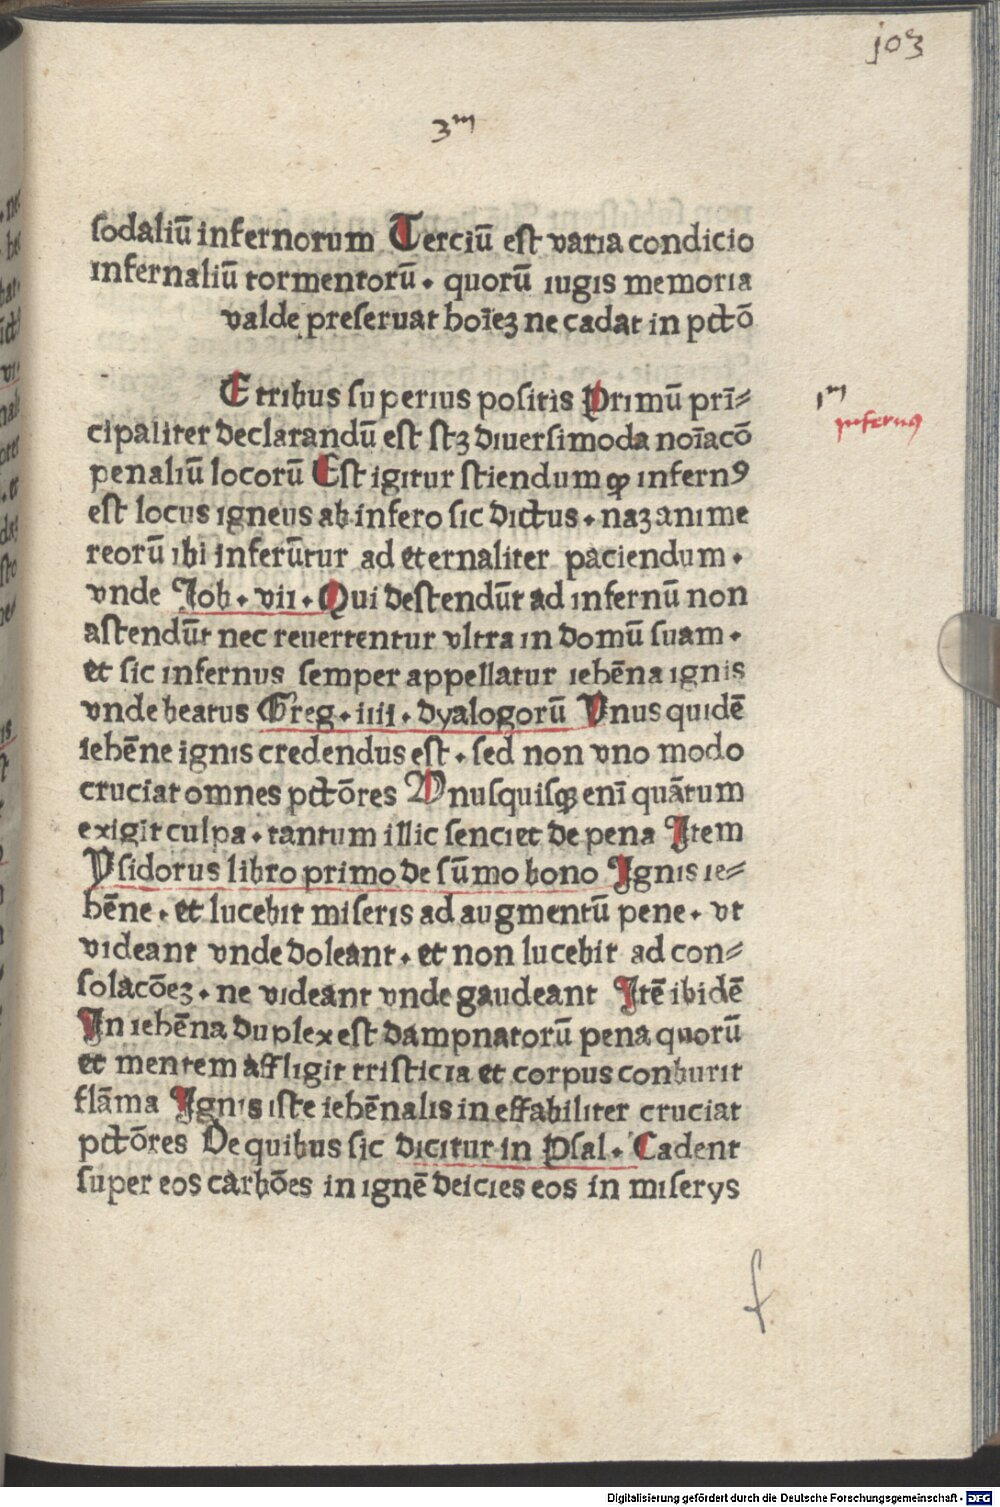 103
3m
sodaliū infernorum Terciū est varia condicio
infernaliū tormentorū . quorū iugis memoria
valde preseruat hoīeꝫ ne cadat in pctō
E tribus superius positis Primū prī⸗
cipaliter declarandū est stꝫ diuersimoda noīacō
penaliū locorū Est igitur sciendum ꝙ infernꝯ
est locus igneus ab infero sic dictus . naꝫ anime
reorū ibi inferūtur ad eternaliter paciendum .
vnde Job . vii . Qui descendūt ad infernū non
ascendūt nec reuertentur vltra in domū suam .
et sic infernus semper appellatur iehēna ignis
vnde beatus Greg . iiii . dyalogorū Vnus quidē
iehēne ignis credendus est . sed non vno modo
cruciat omnes pctōres Vnusquisqꝫ enī quātum
exigit culpa . tantum illic senciet de pena Item
Ysidorus libro primo de sūmo bono Ignis ie⸗
hēne . et lucebit miseris ad augmentū pene . vt
videant vnde doleant . et non lucebit ad con⸗
solacōeꝫ . ne videant vnde gaudeant Itē ibidē
In iehēna duplex est dampnatorū pena quorū
et mentem affligit tristicia et corpus conburit
flāma Ignis iste iehēnalis ineffabiliter cruciat
pctōres De quibus sic dicitur in Psal . Cadent
super eos carbōes in ignē deicies eos in miserys
1m
infernꝯ
f
Digitalisierung gefördert durch die Deutsche Forschungsgemeinschaft - DFG